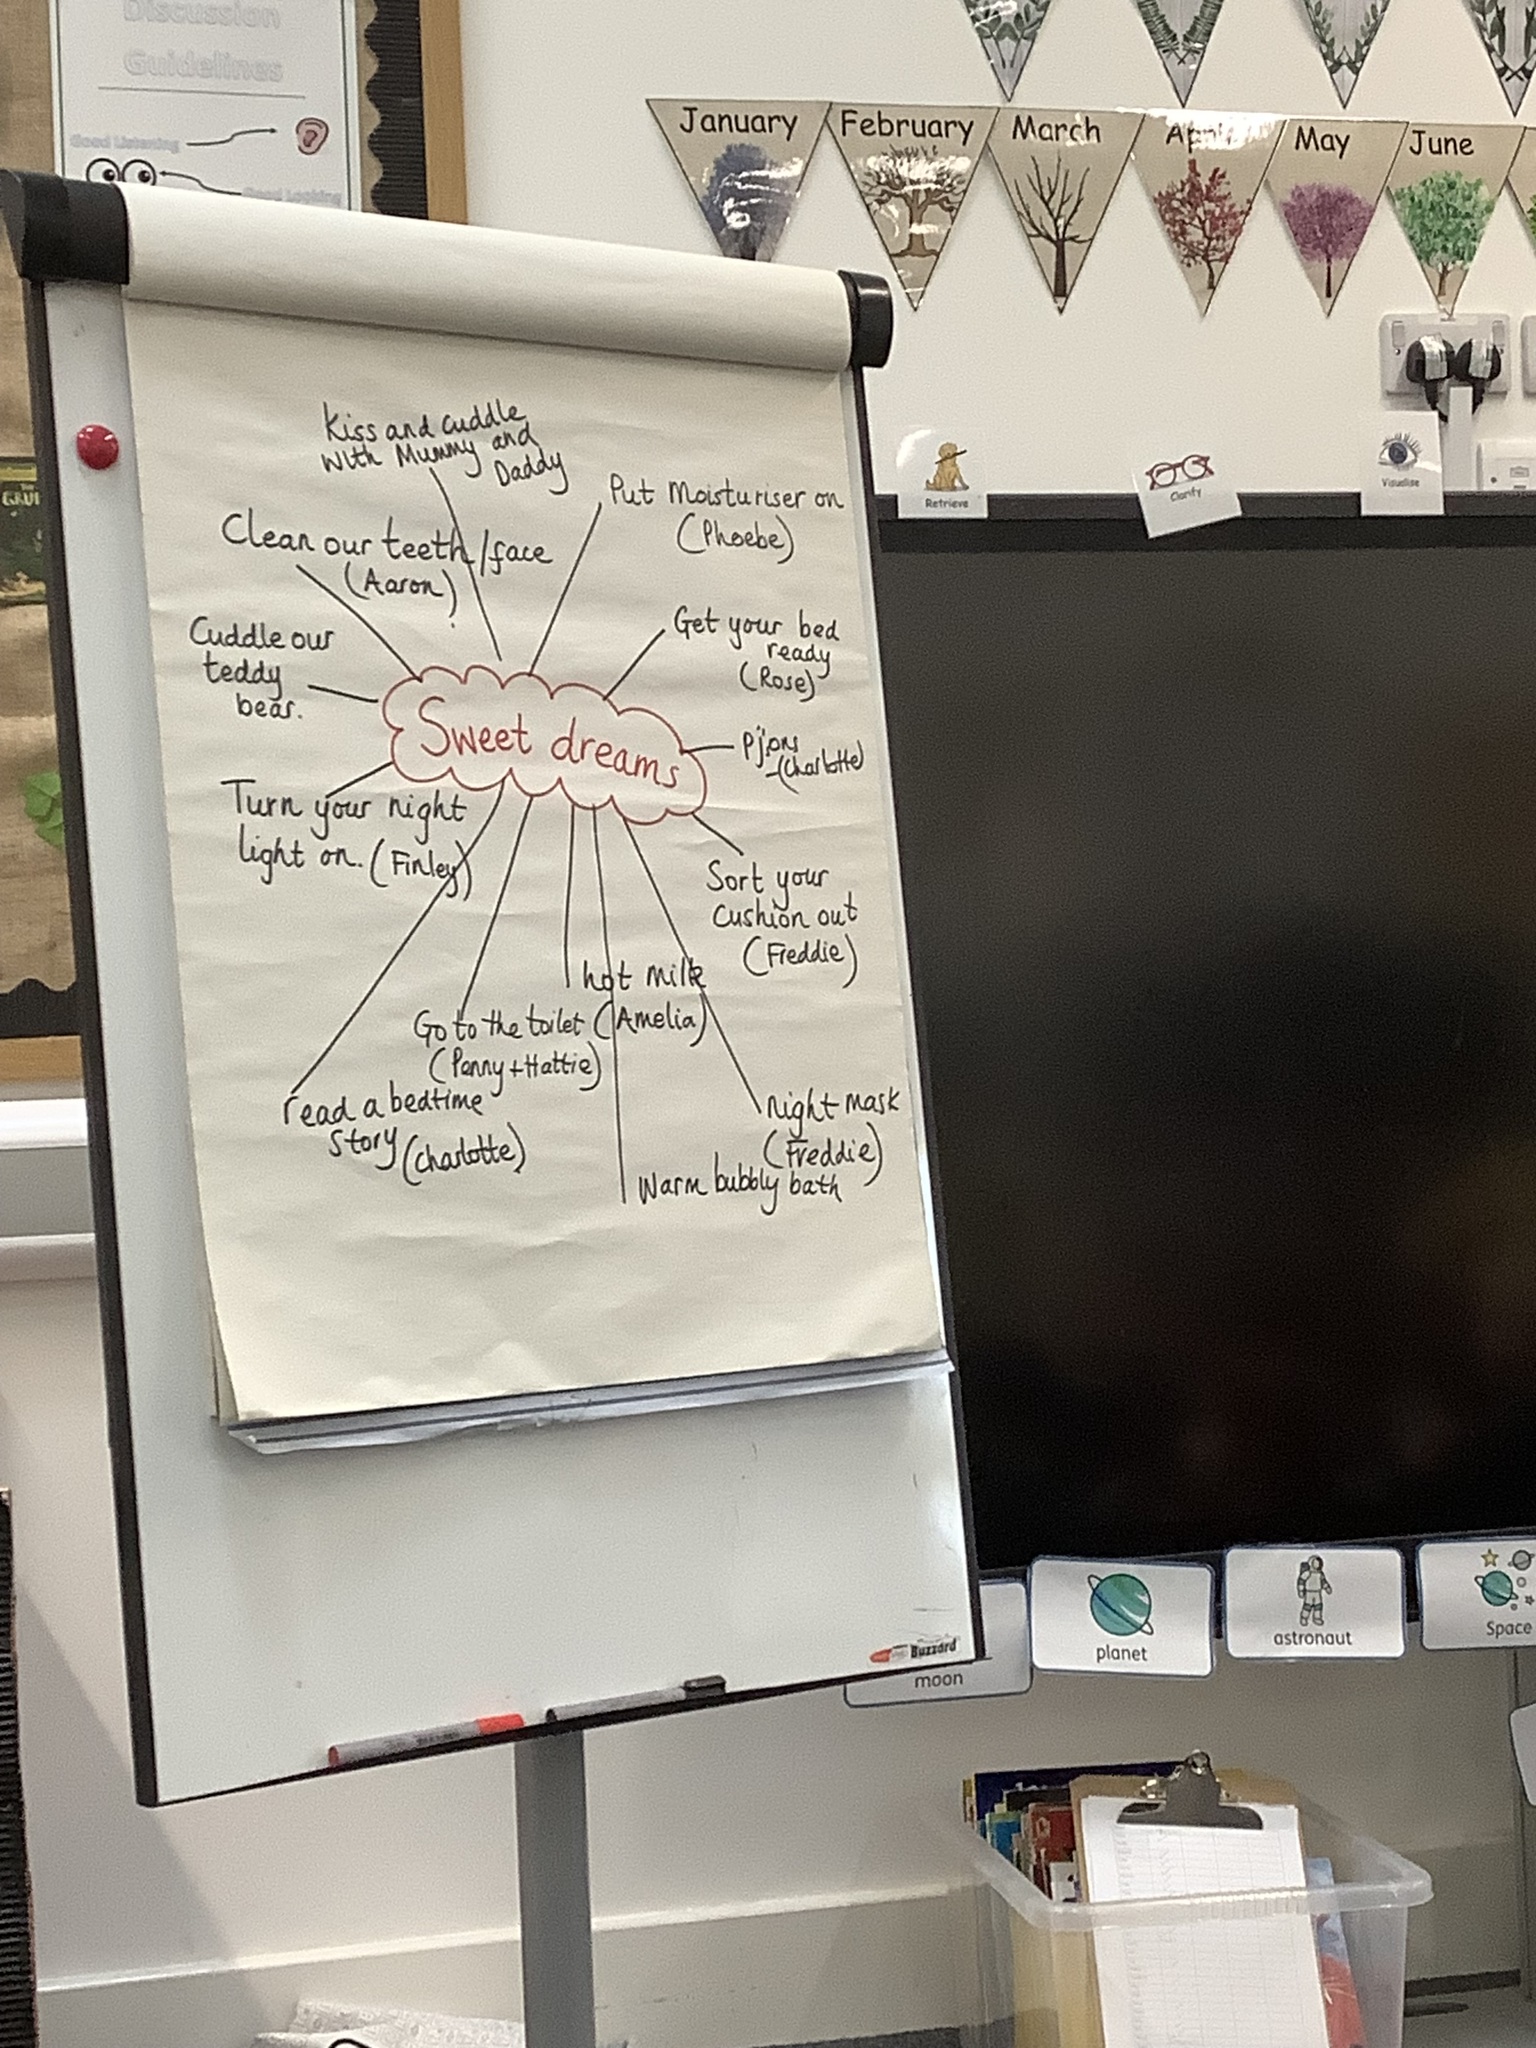 Discussion
Guidelines
Good Listening
Good Looking
January
February
March
April
May
June
Kiss and cuddle
with Mummy and
Daddy
Put Moisturiser on
(Phoebe)
Clean our teeth/face
(Aaron)
Get your bed
ready
(Rose)
Cuddle our
teddy
bear.
Sweet dreams
Pj's on
-(Charlotte)
Turn your night
light on. (Finley)
Sort your
cushion out
(Freddie)
hot milk
(Amelia)
Go to the toilet
(Penny + Hattie)
read a bedtime
story (Charlotte)
night mask
(Freddie)
Warm bubbly bath
Retrieve
Clarify
Visualise
Buzzard
moon
planet
astronaut
Space